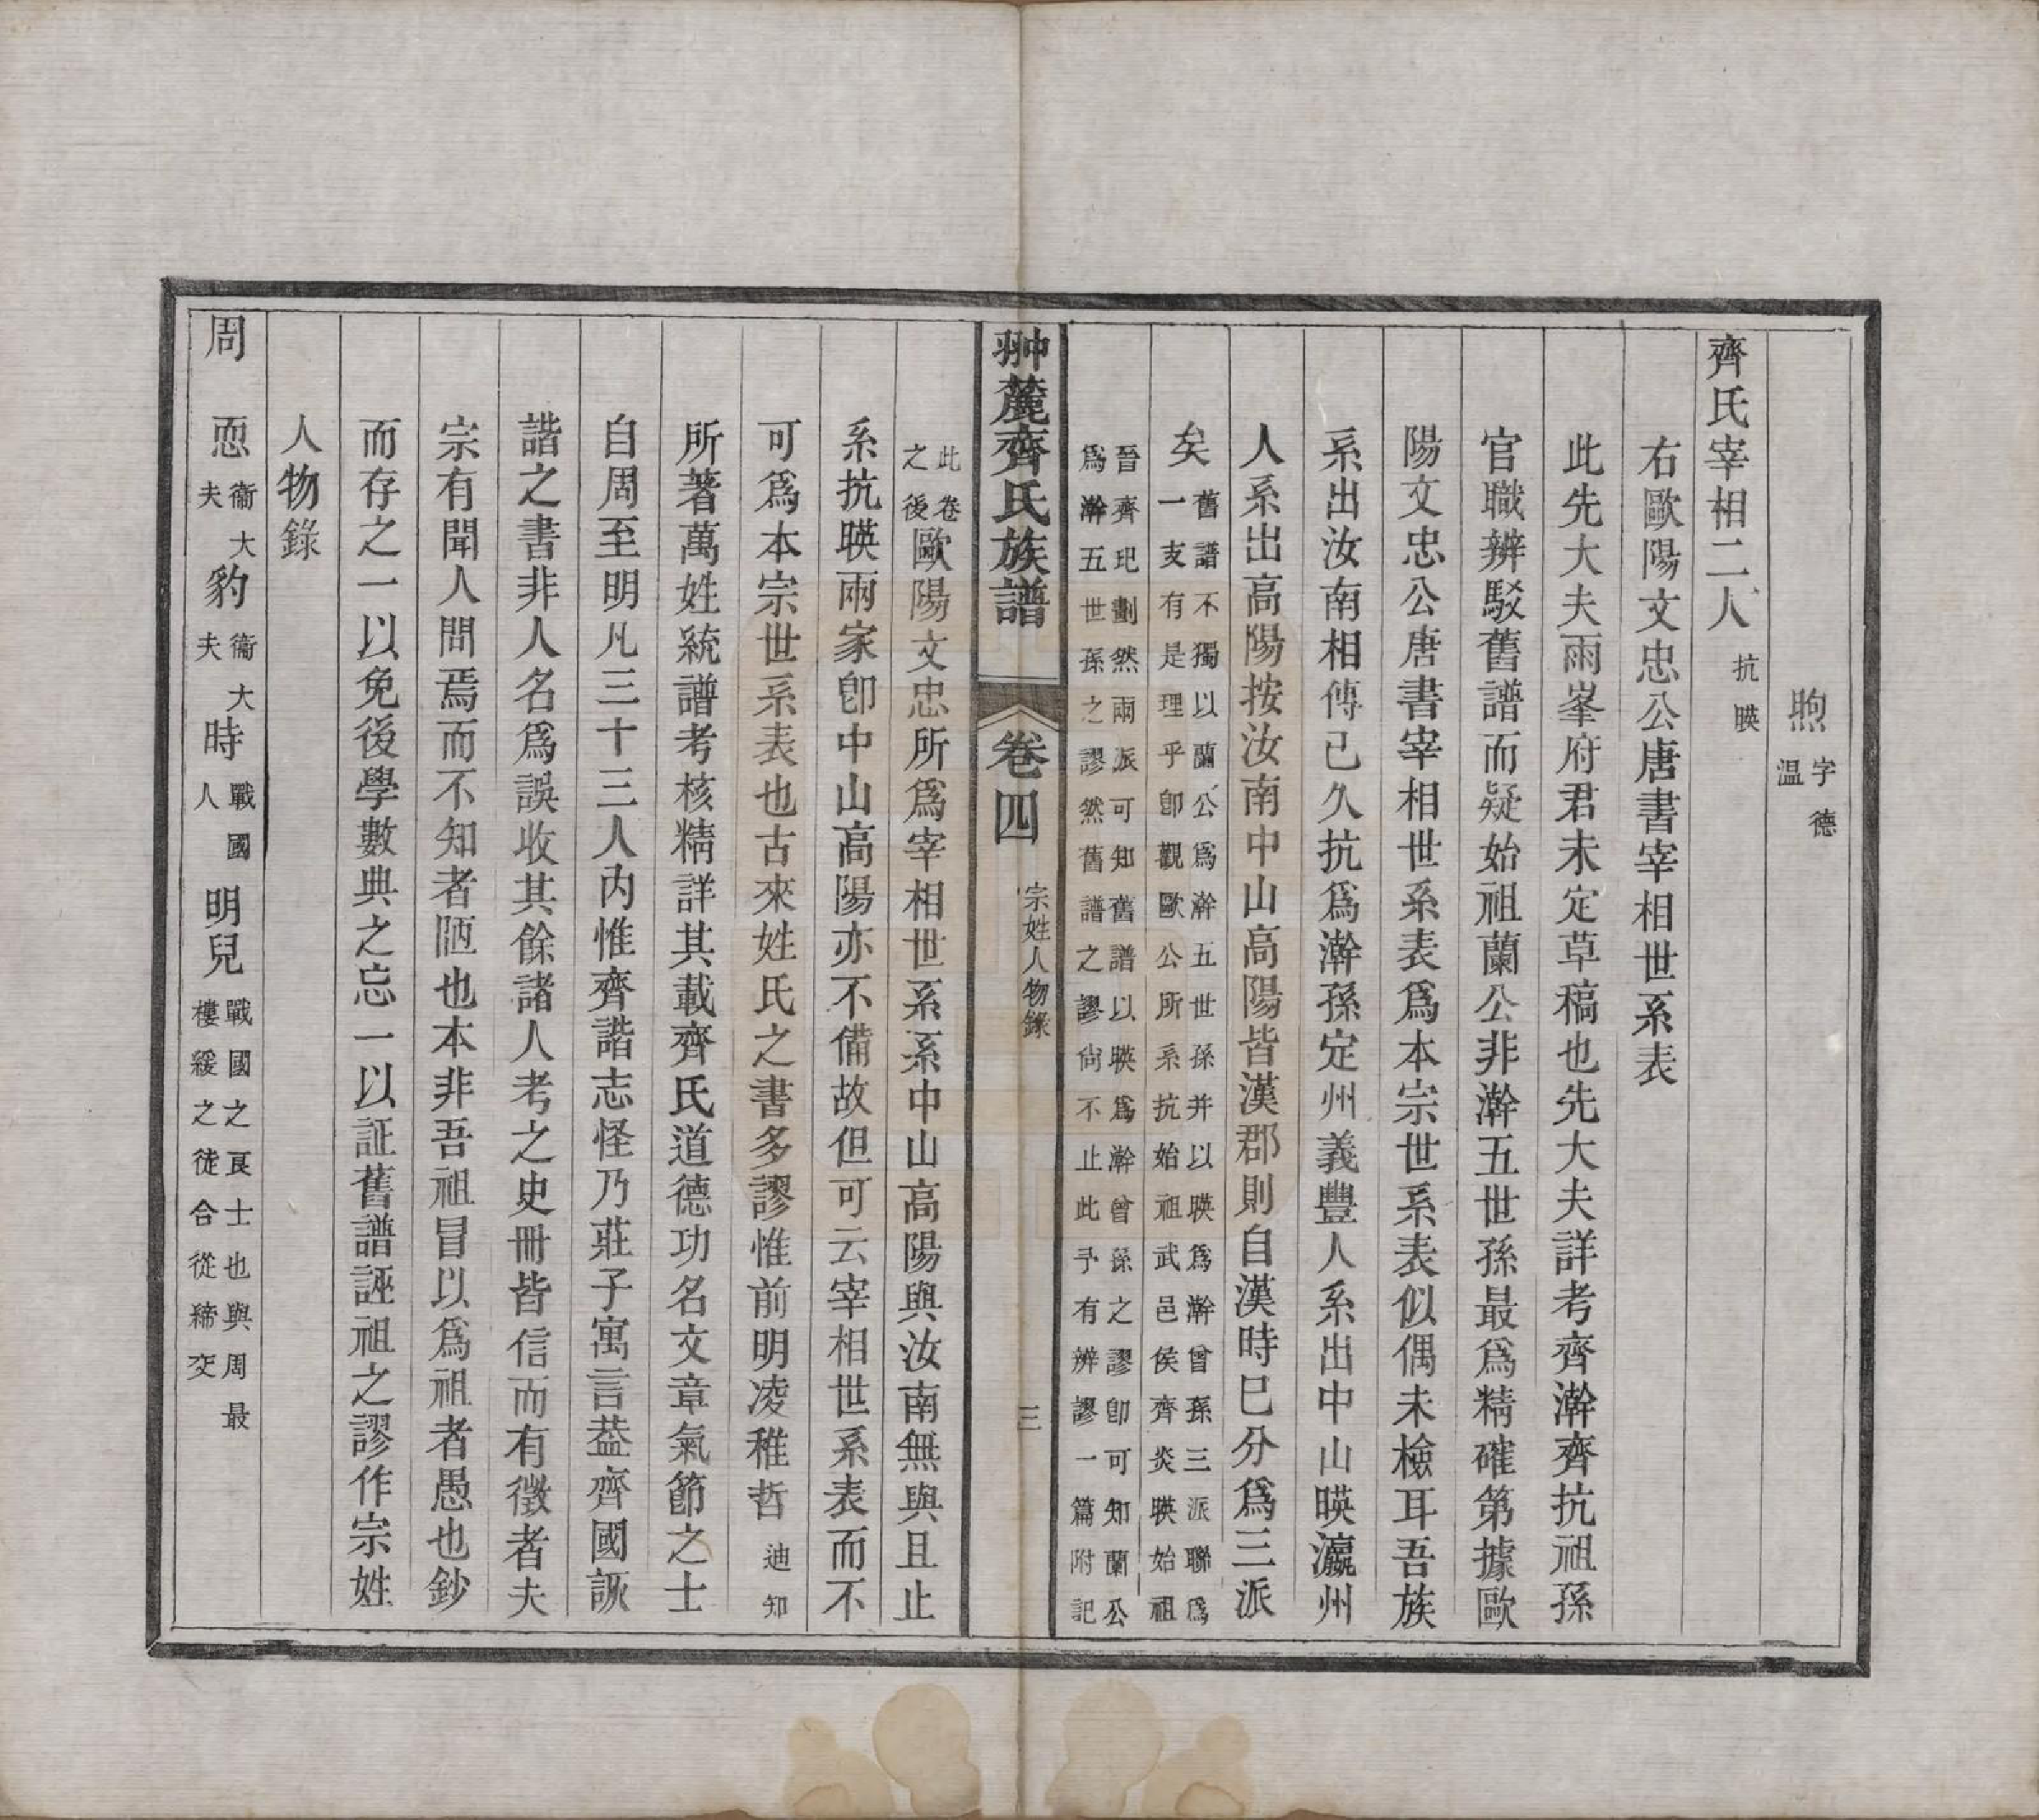 煦字德温
齊氏宰相二人抗暎
右歐陽文忠公唐書宰相世系表
此先大夫雨峯府君未定草稿也先大夫詳考齊澣齊抗祖孫
官職辨駁舊譜而疑始祖蘭公非澣五世孫最爲精確第據歐
陽文忠公唐書宰相世系表爲本宗世系表似偶未檢耳吾族
系出汝南相傳已久抗爲澣孫定州義豐人系出中山暎瀛州
人系出高陽按汝南中山高陽皆漢郡則自漢時已分爲三派
矣舊譜不獨以蘭公爲澣五世孫并以暎爲澣曾孫三派聯爲一支有是理乎卽觀歐公所系抗始祖武邑侯齊炎暎始祖
晉齊玘劃然兩派可知舊譜以暎爲澣曾孫之謬卽可知蘭公爲澣五世孫之謬然舊譜之謬尙不止此予有辨謬一篇附記
翀麓齊氏族譜 卷四 宗姓人物錄 三
此卷之後歐陽文忠所爲宰相世系系中山高陽與汝南無與且止
系抗暎兩家卽中山高陽亦不備故但可云宰相世系表而不
可爲本宗世系表也古來姓氏之書多謬惟前明凌稚哲迪知
所著萬姓統譜考核精詳其載齊氏道德功名文章氣節之士
自周至明凡三十三人内惟齊諧志怪乃莊子寓言葢齊國詼
諧之書非人名爲誤收其餘諸人考之史冊皆信而有徵者夫
宗有聞人問焉而不知者陋也本非吾祖冒以爲祖者愚也鈔
而存之一以免後學數典之忘一以証舊譜誣祖之謬作宗姓
人物錄
周 惡衞大夫 豹衞大夫 時戰國人 明兒戰國之良士也與周最樓緩之徒合從締交